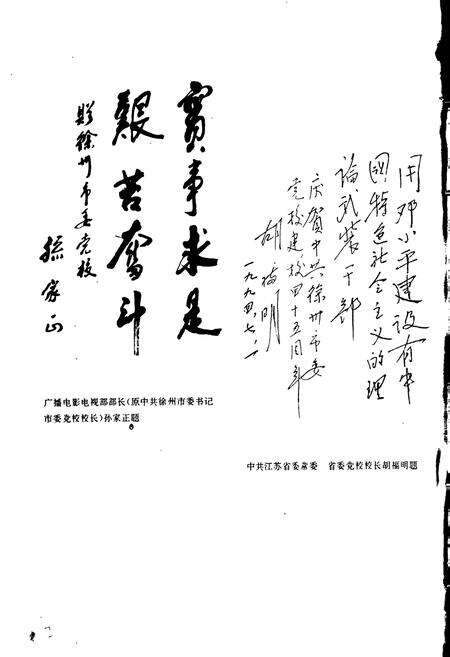 用邓小平建设有中
国特色社会主义的理
论武装干部
庆贺中共徐州市委
党校建校四十五周年
胡福明
一九九四.七.一
實事求是
艱苦奮斗
赠徐州市委党校
孙家正
广播电影电视部部长(原中共徐州市委书记
市委党校校长)孙家正题
中共江苏省委常委 省委党校校长胡福明题